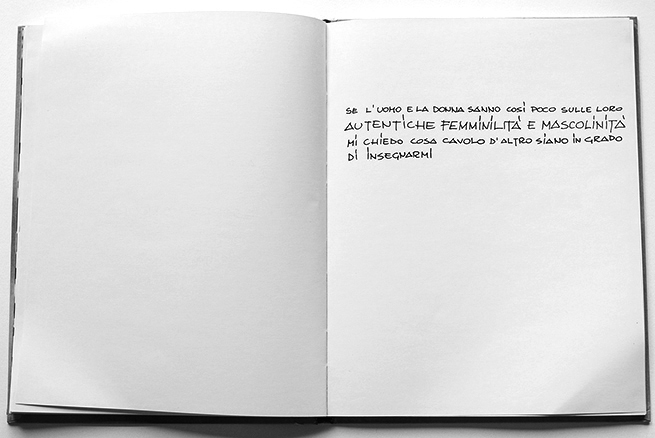 SE L'UOMO E LA DONNA SANNO COSÌ POCO SULLE LORO
AUTENTICHE FEMMINILITÀ E MASCOLINITÀ
MI CHIEDO COSA CAVOLO D'ALTRO SIANO IN GRADO
DI INSEGNARMI